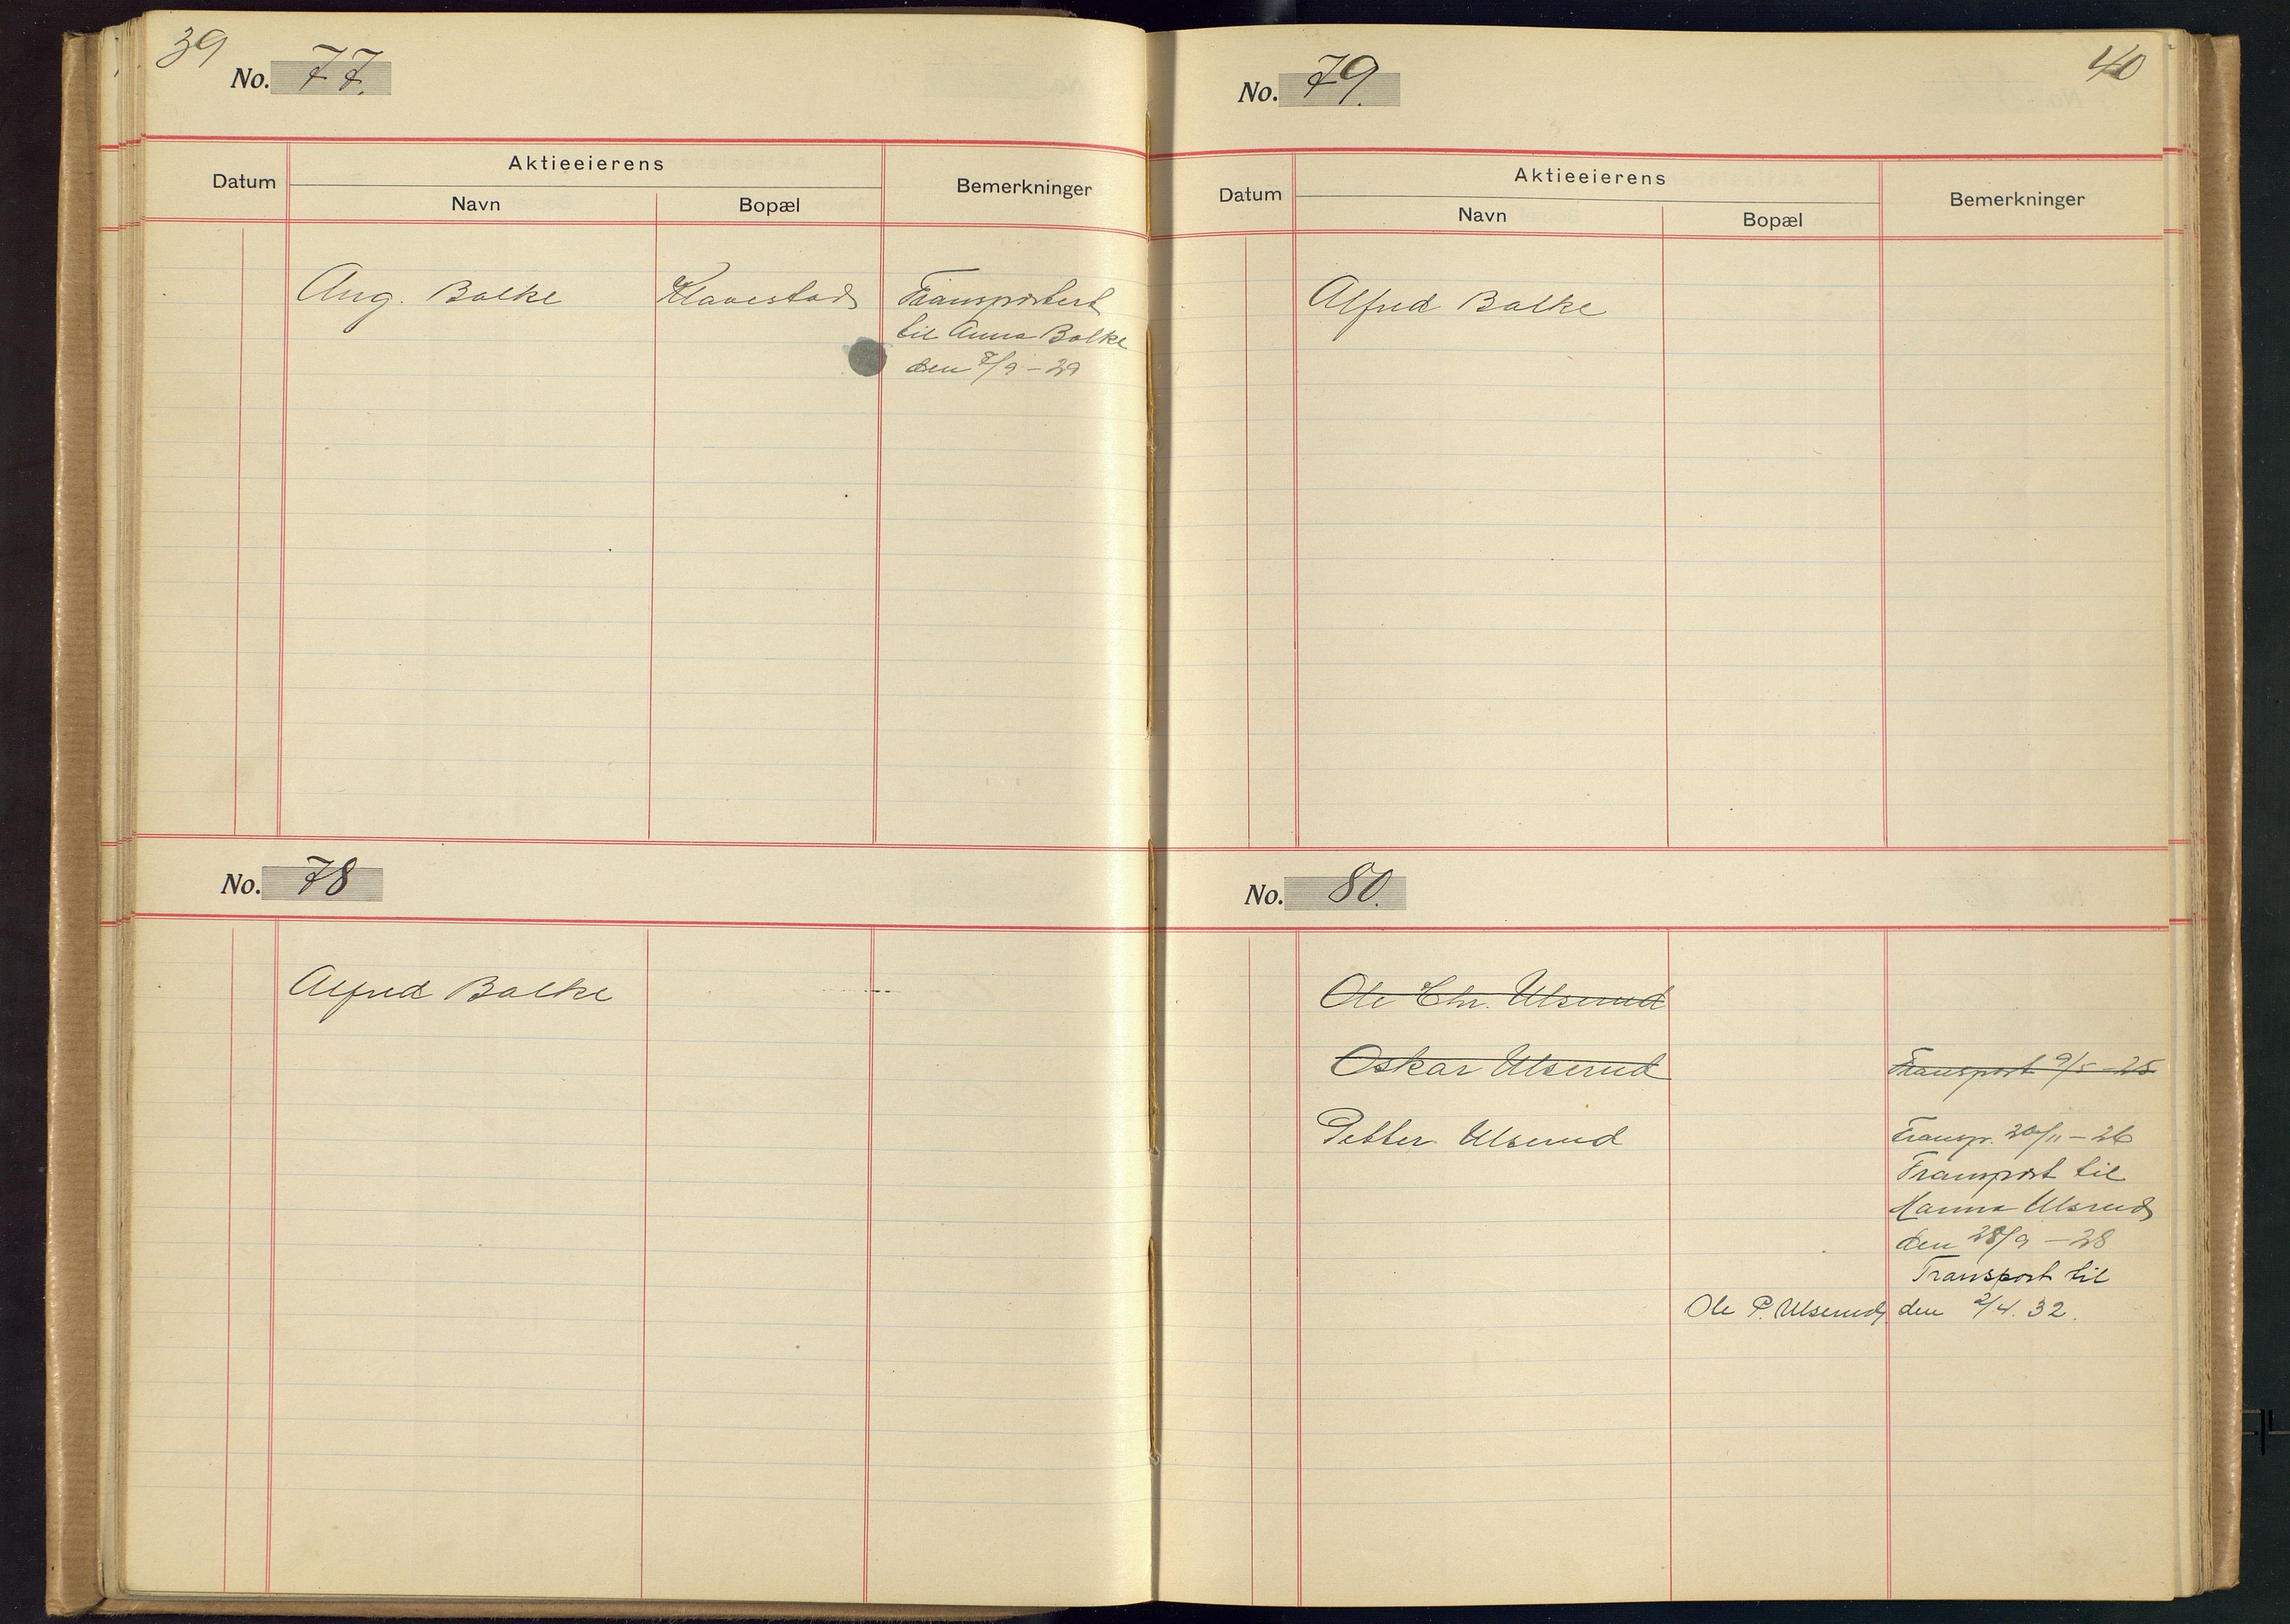 39
No. 77.
Aktieeierens
Datum
Navn
Bopæl
Bemerkninger
Aug. Balke
Klavestad
Transportert
til Anna Balke
den 7/9 – 29
No. 78
Alfred Balke
40
No. 79.
Aktieeierens
Datum
Navn
Bopæl
Bemerkninger
Alfred Balke
No. 80.
Ole Chr. Ulserud
Oskar Ulserud
Transport 9/5 – 25
Petter Ulserud
Transp. 20/11 – 26
Transport til
Hanna Ulsrud
den 28/9 – 28
Transport til
Ole P. Ulserud den 2/4. 32.